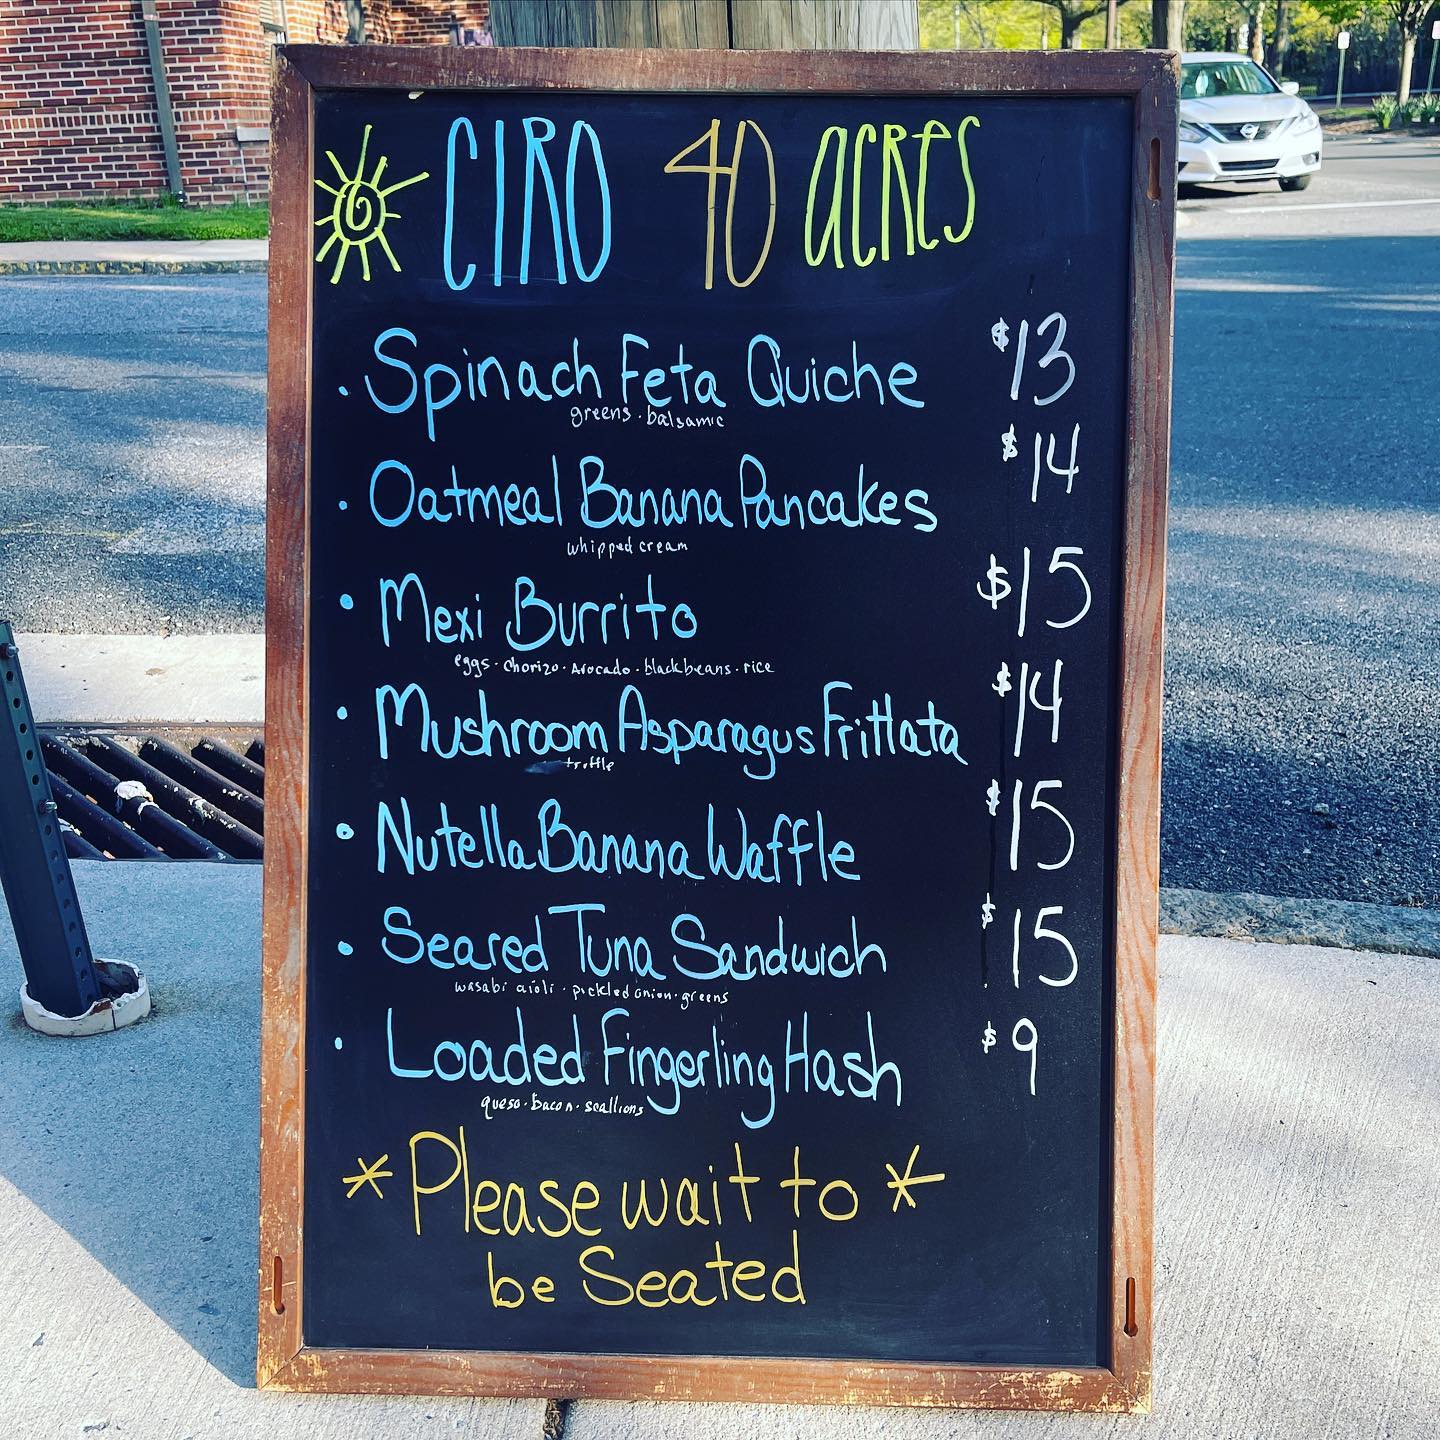 CIRO 40 acres
· Spinach Feta Quiche $13
greens · balsamic
· Oatmeal Banana Pancakes $14
whipped cream
· Mexi Burrito $15
eggs · chorizo · Avocado · black beans · rice
· Mushroom Asparagus Frittata $14
truffle
· Nutella Banana Waffle $15
· Seared Tuna Sandwich $15
wasabi aioli · pickled onion · greens
· Loaded Fingerling Hash $9
queso · bacon · scallions
*Please wait to*
be Seated